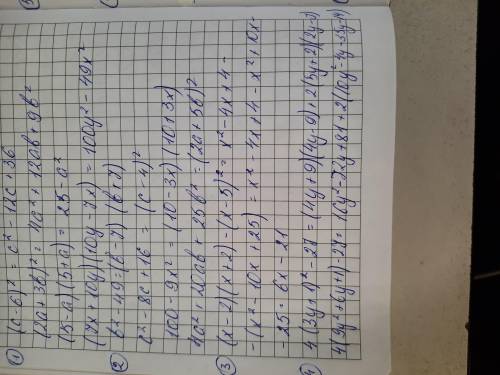 ① (c-6)² = c² - 12c + 36
(2a+3b)² = 4a² + 12ab + 9b²
(5-a)(5+a) = 25 - a²
(7x+10y)(10y-7x) = 100y² - 49x²
② b² - 49 = (b-7)(b+7)
c² - 8c + 16 = (c-4)²
100 - 9x² = (10-3x)(10+3x)
4a² + 20ab + 25b² = (2a+5b)²
③ (x-2)(x+2) - (x-5)² = x² - 4x + 4 -
-(x² - 10x + 25) = x² - 4x + 4 - x² + 10x -
- 25 = 6x - 21
④ 4(3y+1)² - 27 = (4y+9)(4y-9) + 2(5y+2)(2y-7)
4(9y²+6y+1) - 27 = 16y² - 72y + 81 + 2(10y² - 4y - 35y - 14)